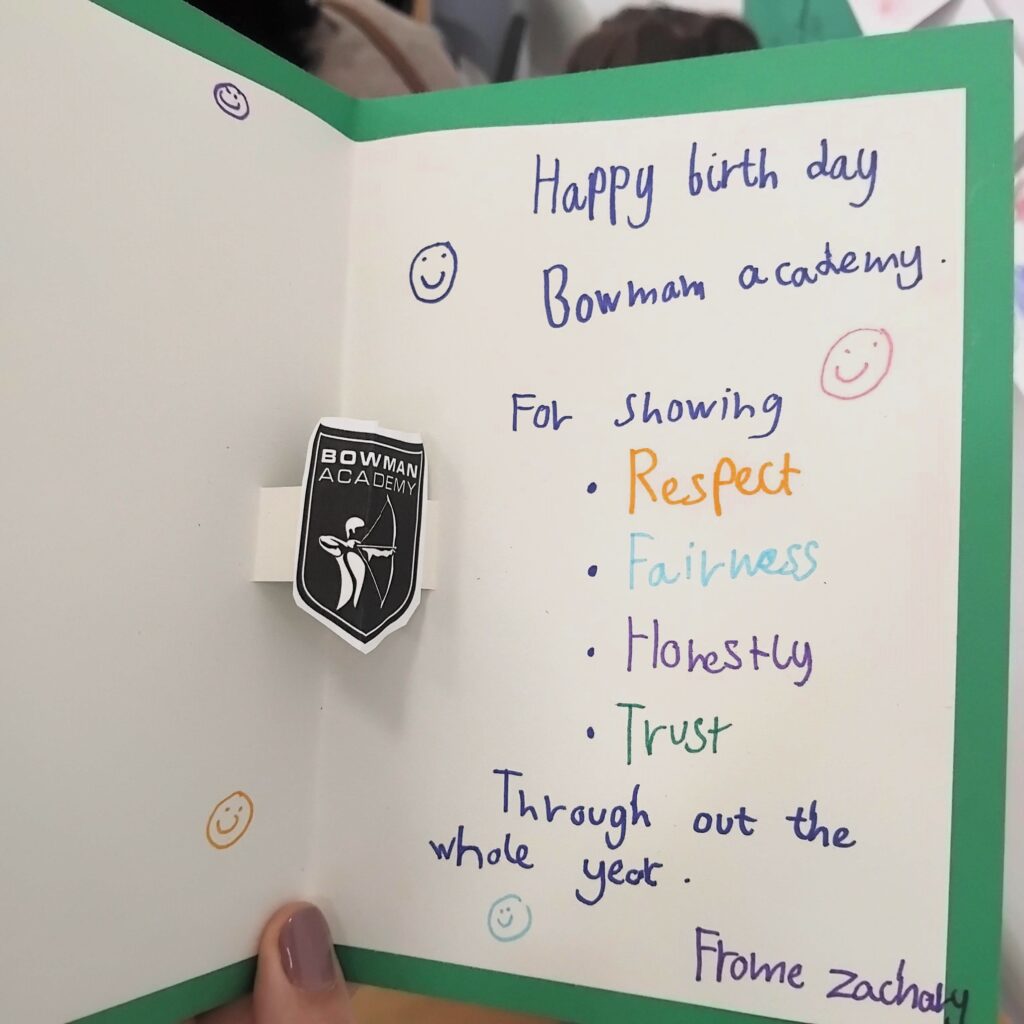 Happy birth day
Bowmam academy.
For showing
• Respect
• Fairness
• Honestly
• Trust
Through out the
whole year.
Frome Zachary
BOWMAN
ACADEMY